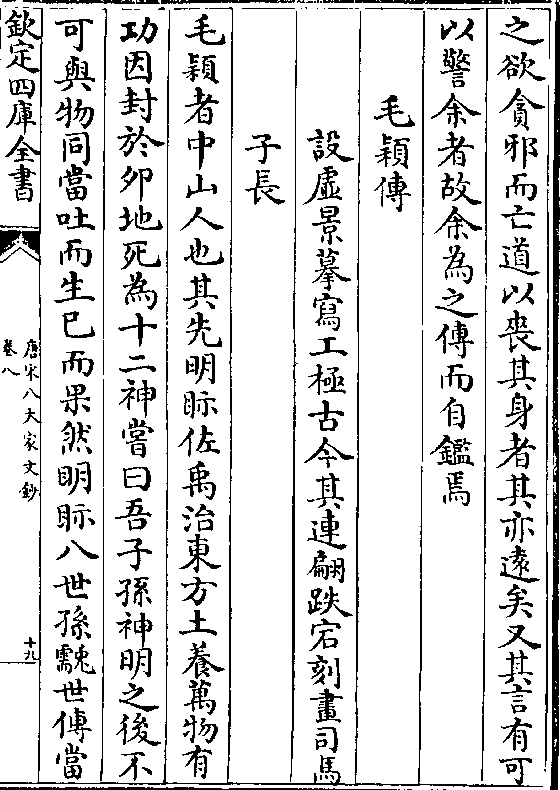 之欲貪邪而亡道以喪其身者其亦遠矣又其言有可
以警余者故余為之傳而自鑑焉
毛穎傳
設虛景摹寫工極古今其連翩跌宕刻畫司馬
子長
毛穎者中山人也其先明眎佐禹治東方土養萬物有
功因封於卯地死為十二神嘗曰吾子孫神明之後不
可與物同當吐而生已而果然明眎八世孫䨲世傳當
欽定四庫全書
唐宋八大家文鈔
卷八
十九